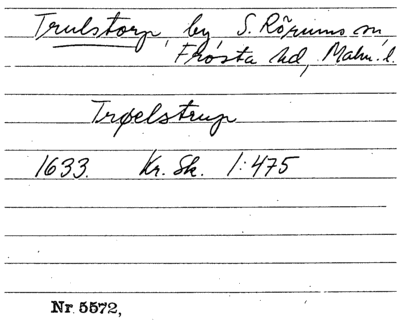 Trulstorp, by, S. Rörums sn,
Frosta hd, Malm. l.
Trøelstrup
1633. Kr. Sk. 1:475
Nr 5572,